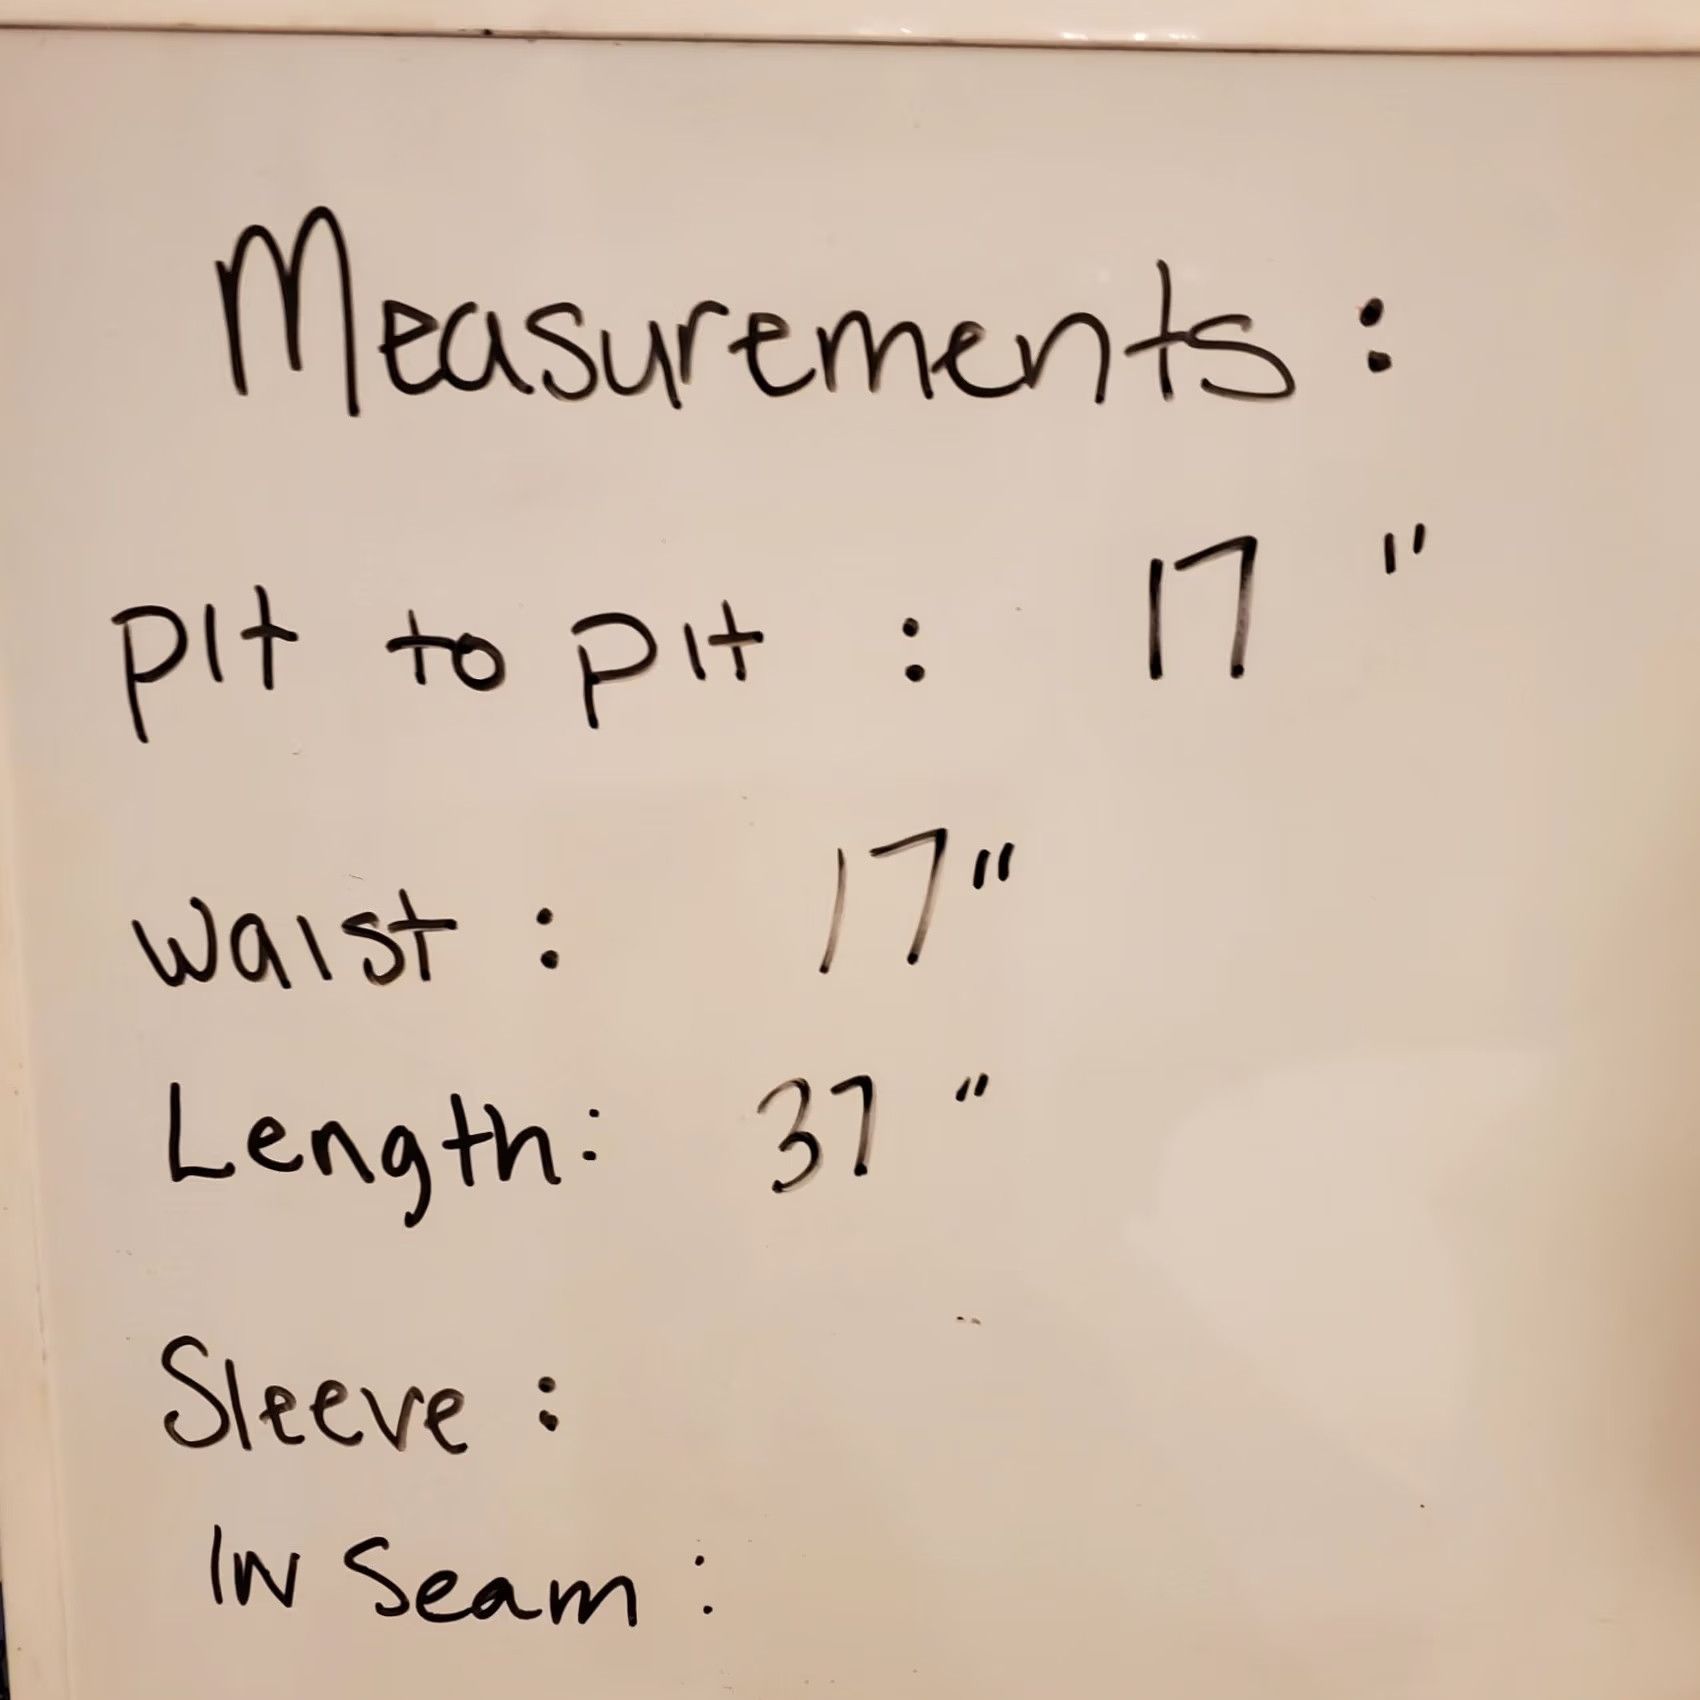 Measurements :
Pit to Pit : 17 "
Waist : 17"
Length: 37 "
Sleeve :
IN Seam :